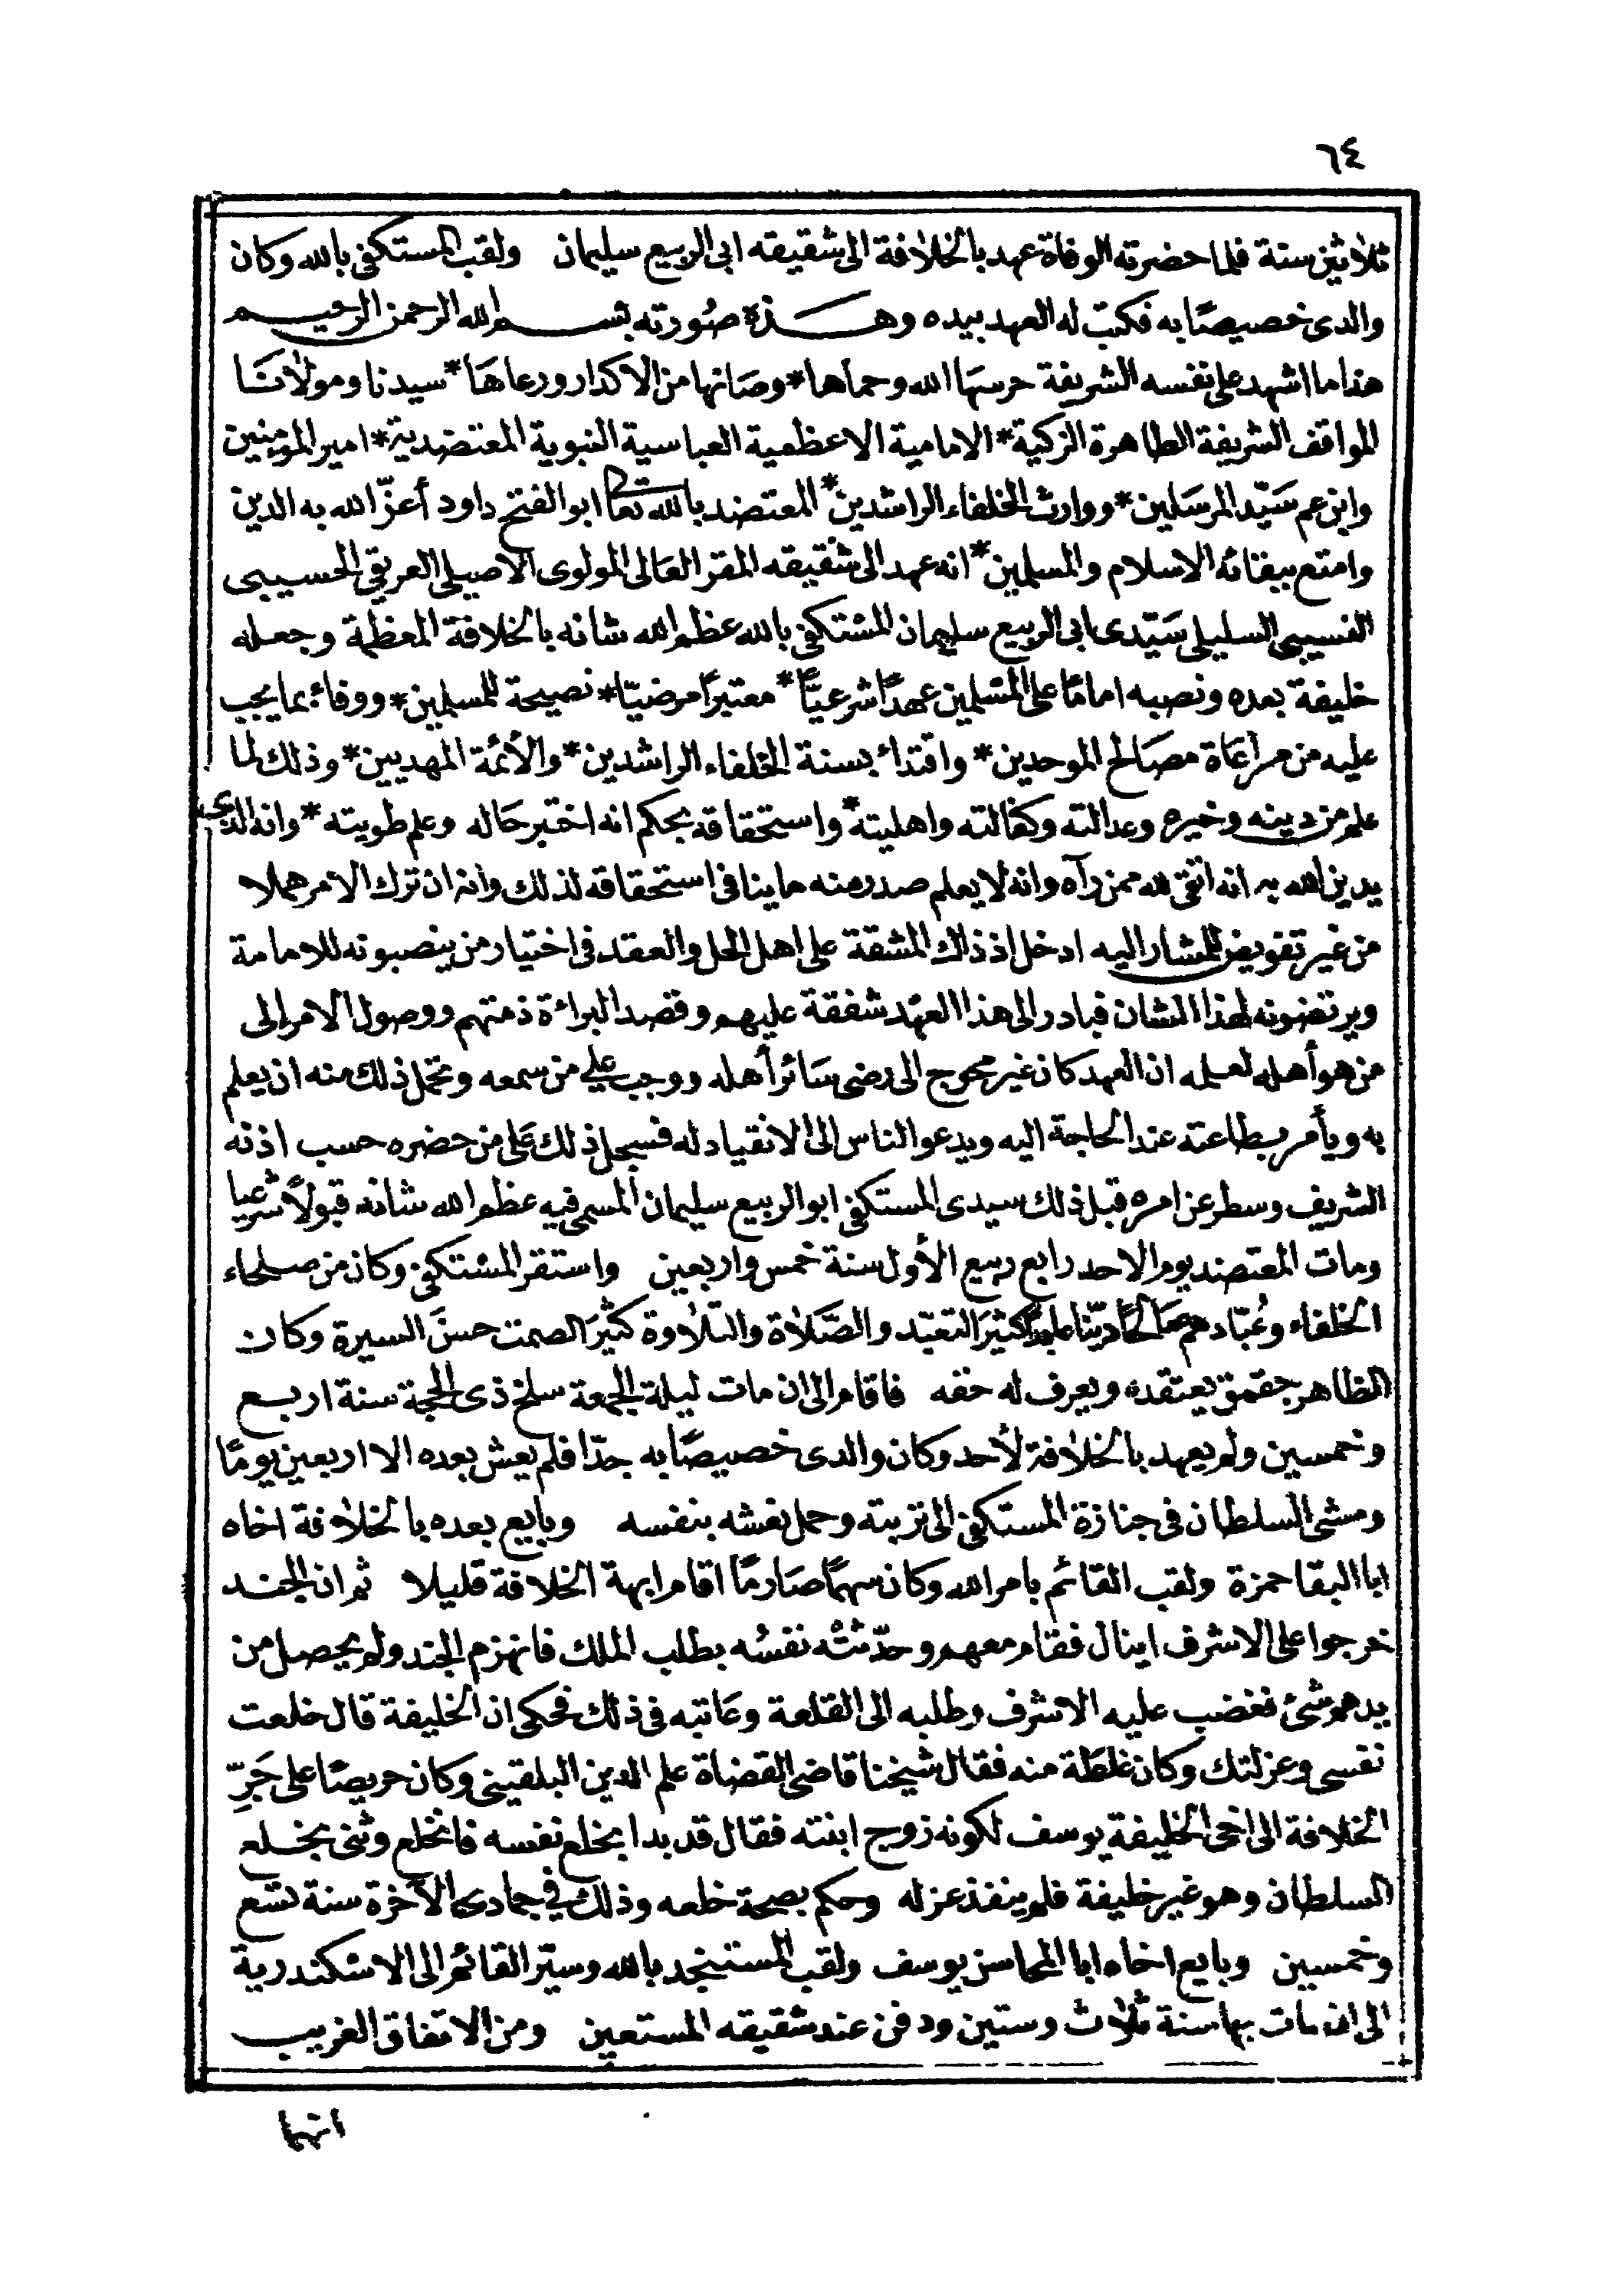 ٦٤
ثلاثين سنة فلما حضرته الوفاة عهد بالخلافة الى شقيقه ابى الربيع سليمان ولقب المستكفى بالله وكان
والدى خصيصًا به فكتب له العهد بيده وهذه صُورته بسم الله الرحمن الرحيم
هذا ما اشهد على نفسه الشريفة حرسهَا الله وحماها * وصَانها من الاكدار ورعاهَا * سيدنا ومولانَا
المواقف الشريفة الطاهرة الزكية * الامامية الاعظمية العباسية النبوية المعتضدية * امير المؤمنين
وابن عم سَيّد المرسَلين * ووارث الخلفاء الراشدين * المعتضد بالله تعا ابو الفتح داود أعزّ الله به الدين
وامتع ببقائه الاسلام والمسلمين * انه عهد الى شقيقه المقر العَالى المولوى الاصيلى العريقى الحسيبى
النسيبى السليلى سَيّدى ابى الربيع سليمان المستكفى بالله عظم الله شانه بالخلافة المعظمة وجعله
خليفة بعده ونصبه امامًا على المسلمين عهدًا شرعيًّا * معتبرًا مرضيًّا * نصيحة للمسلمين * ووفاءً بما يجب
عليه من مراعَاة مصَالح الموحدين * واقتداءً بسنة الخلفاء الراشدين * والأئمة المهديين * وذلك لما
علم من دينه وخيره وعدالته وكفالته واهليته * واستحقاقه بحكم انه اختبر حَاله وعلم طويته * وانه الذى
يدين الله به انه اتقى لله ممن رآه وانه لا يعلم صدر منه ما ينافى استحقاقه لذلك وانه ان ترك الامر هملا
من غير تفويض للمشار اليه ادخل اذ ذاك المشقة على اهل الحل والعقد فى اختيار من ينصبونه للامامة
ويرتضونه لهذا الشان فبادر الى هذا العهد شفقة عليهم وقصد البراءة ذمتهم ووصول الامر إلى
من هو أهله لعلمه ان العهد كان غير محوج الى رضى سَائر أهله ووجب على من سمعه وتحمل ذلك منه ان يعلم
به ويأمر بطاعته عند الحاجة اليه ويدعو الناس الى الانقياد له فسجل ذلك عَلى من حضره حسب اذنه
الشريف وسطر عن امره قبل ذلك سيدى المستكفى ابو الربيع سليمان المسمى فيه عظم الله شانه قبولاً شرعيا
ومات المعتضد يوم الاحد رابع ربيع الأول سنة خمس واربعين واستقر المستكفى وكان من صلحاء
الخلفاء وعُبّادهم صَالحًا ديّنا عابدًا كثيرَ التعبّد والصَّلاة والتلاوة كثيرَ الصمت حسنَ السيرة وكان
الظاهر جقمق يعتقده ويعرف له حقه فاقام الى ان مات ليلة الجمعة سلخ ذى الحجة سنة اربع
وخمسين ولم يعهد بالخلافة لأحد وكان والدى خصيصًا به جدّا فلم يعش بعده الا اربعين يومًا
ومشى السلطان فى جنازة المستكفى الى تربته وحمل نعشه بنفسه وبايع بعده بالخلافة اخاه
ابا البقا حمزة ولقب القائم بامر الله وكان سهمًا صَارمًا اقام ابهة الخلافة قليلا ثم ان الجند
خرجوا على الاشرف اينال فقام معهم وحدّثتْه نفسُه بطلب الملك فانهزم الجند ولم يحصل من
يدهم شئ فغضب عليه الاشرف وطلبه الى القلعة وعَاتبه فى ذلك فحكى ان الخليفة قال خلعت
نفسى وعزلتك وكان غلطَة منه فقال شيخنا قاضى القضاة علم الدين البلقينى وكان حريصًا على جَرِّ
الخلافة الى اخى الخليفة يوسف لكونه زوج ابنته فقال قد بدا بخلع نفسه فانخلع وثنى بخلع
السلطان وهو غير خليفة فلم ينفذ عزله وحكم بصحة خلعه وذلك فى جمادى الآخرة سنة تسع
وخمسين وبايع اخاه ابا المحاسن يوسف ولقب المستنجد بالله وسيّر القائم الى الاسكندرية
الى ان مات بها سنة ثلاث وستين ودفن عند شقيقه المستعين ومن الاتفاق الغريب
انهما